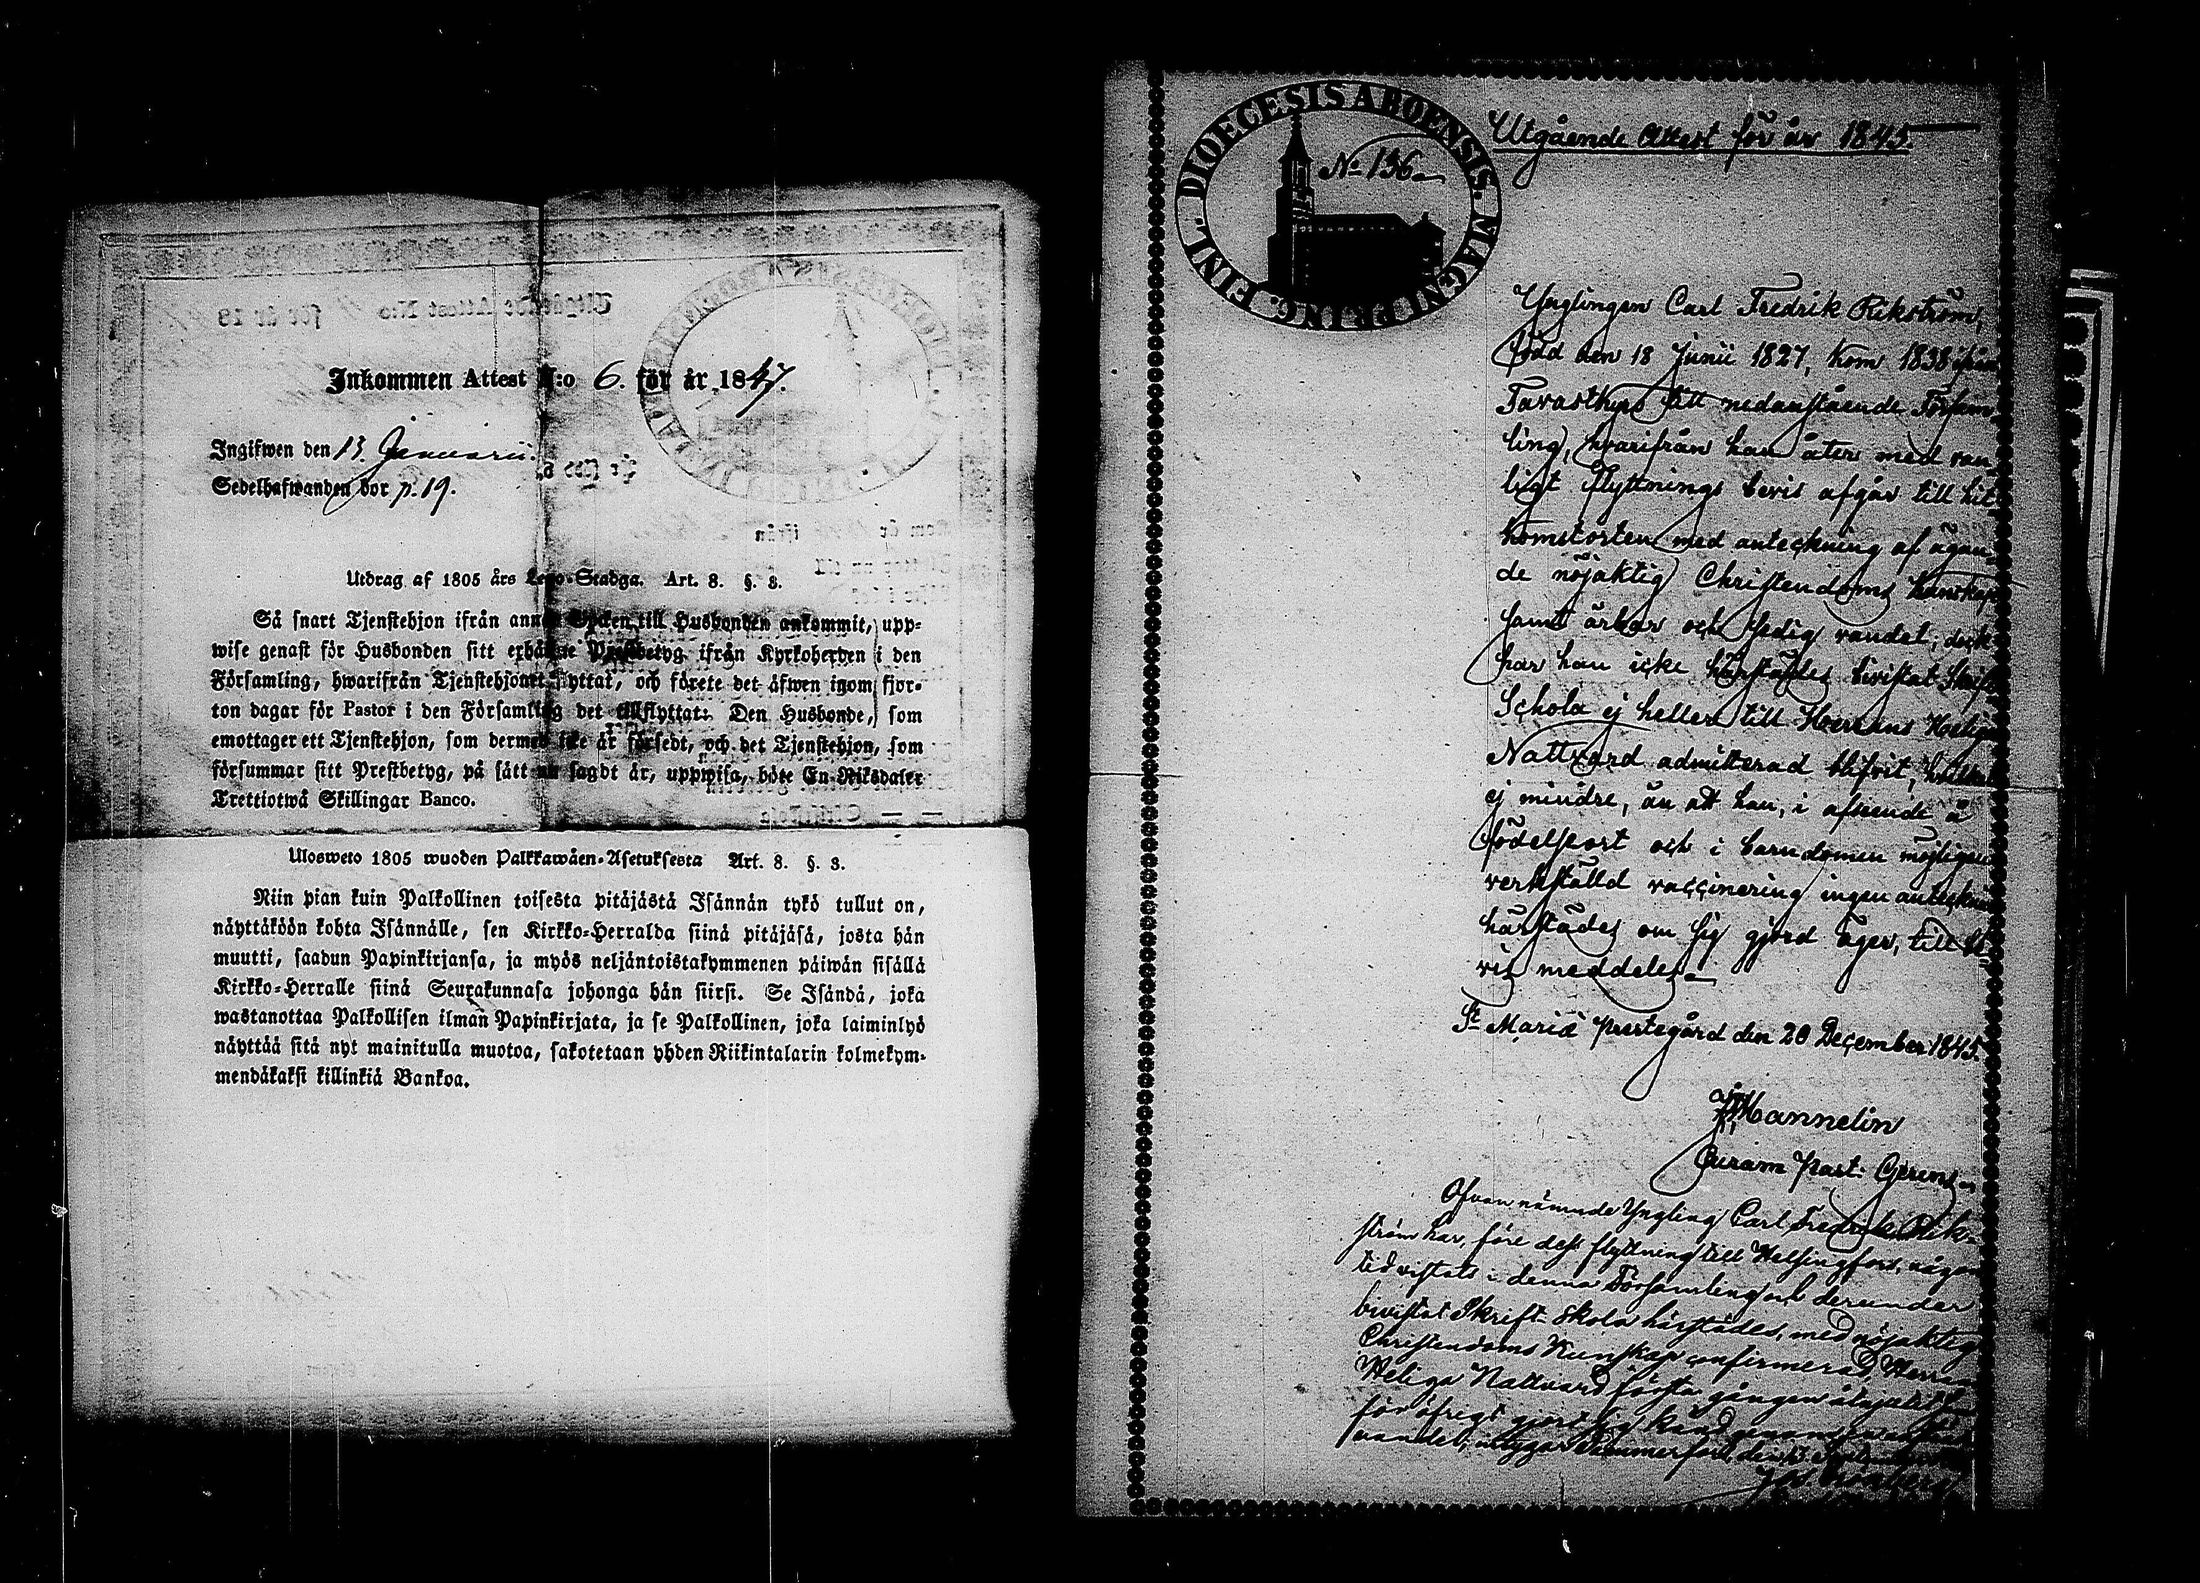 Inkommen Attest N:o 6. för år 1847.
Ingifwen den 13. Januarii.
Sedelhafwanden bor p. 19.
Utdrag af 1805 års Lego-Stadga. Art. 8. §. 3.
Så snart Tjenstehjon ifrån annan Socken till Husbonden ankommit, upp-
wise genast för Husbonden sitt erhållne Prestbetyg ifrån Kyrkoherden i den
Församling, hwarifrån Tjenstehjonet flyttat, och förete det äfwen inom fjor-
ton dagar för Pastor i den Församling det tillflyttat: Den Husbonde, som
emottager ett Tjenstehjon, som dermed icke är försedt, och det Tjenstehjon, som
försummar sitt Prestbetyg, på sätt nu sagdt är, uppwisa, böte En Riksdaler
Trettiotwå Skillingar Banco.
Ulosweto 1805 wuoden Palkkawäen-Asetuksesta Art. 8. §. 3.
Niin pian kuin Palkollinen toisesta pitäjästä Isännän tykö tullut on,
näyttäköön kohta Isännälle, sen Kirkko-Herralda siinä pitäjäsä, josta hän
muutti, saadun Papinkirjansa, ja myös neljäntoistakymmenen päiwän sisällä
Kirkko-Herralle siinä Seurakunnasa johonga hän siirsi. Se Isändä, joka
wastanottaa Palkollisen ilman Papinkirjata, ja se Palkollinen, joka laiminlyö
näyttää sitä nyt mainitulla muotoa, sakotetaan yhden Riikintalarin kolmekym-
mendäkaksi killinkiä Bankoa.
DIOECESIS ABOENSIS. MAGNI PRING. FINL.
No 136
Utgående Attest för år 1845.
Ynglingen Carl Fredrik Rikström,
född den 18 Junii 1827, kom 1838 ifrån
Tavastkyro till nedanstående Försam-
ling, hvarifrån han åter med van-
ligt Flyttnings bevis afgår till hit-
komstorten med anteckning af ägan-
de nöjaktig Christendoms kunskap
samt ärbar och sedig vandel; dock
har han icke härstädes bivistat Skrift
Schola ej heller till Herrans Heliga
Nattvard admitterad blifvit, hvilket
ej mindre, än att han, i afseende å
födelseort och i barndomen möjligen
verkställd vaccinering ingen anteckning
härstädes om sig gjord äger, till be-
vis meddelas
St Mariæ prestegård den 20 December 1845.
Hannelin
Curam Past: Gerens
Ofvannämnde Yngling Carl Fredrik Rik-
ström har, före dess flyttning till Helsingfors, någon
tid vistats i denna Församling och derunder
bivistat Skrift-Skola härstädes, med nöjaktig
Christendoms Kunskap confirmerad, Herrans
Heliga Nattvard första gången åtnjutit
för öfrigt gjort sig känd genom
vandel; intygar Tammerfors den